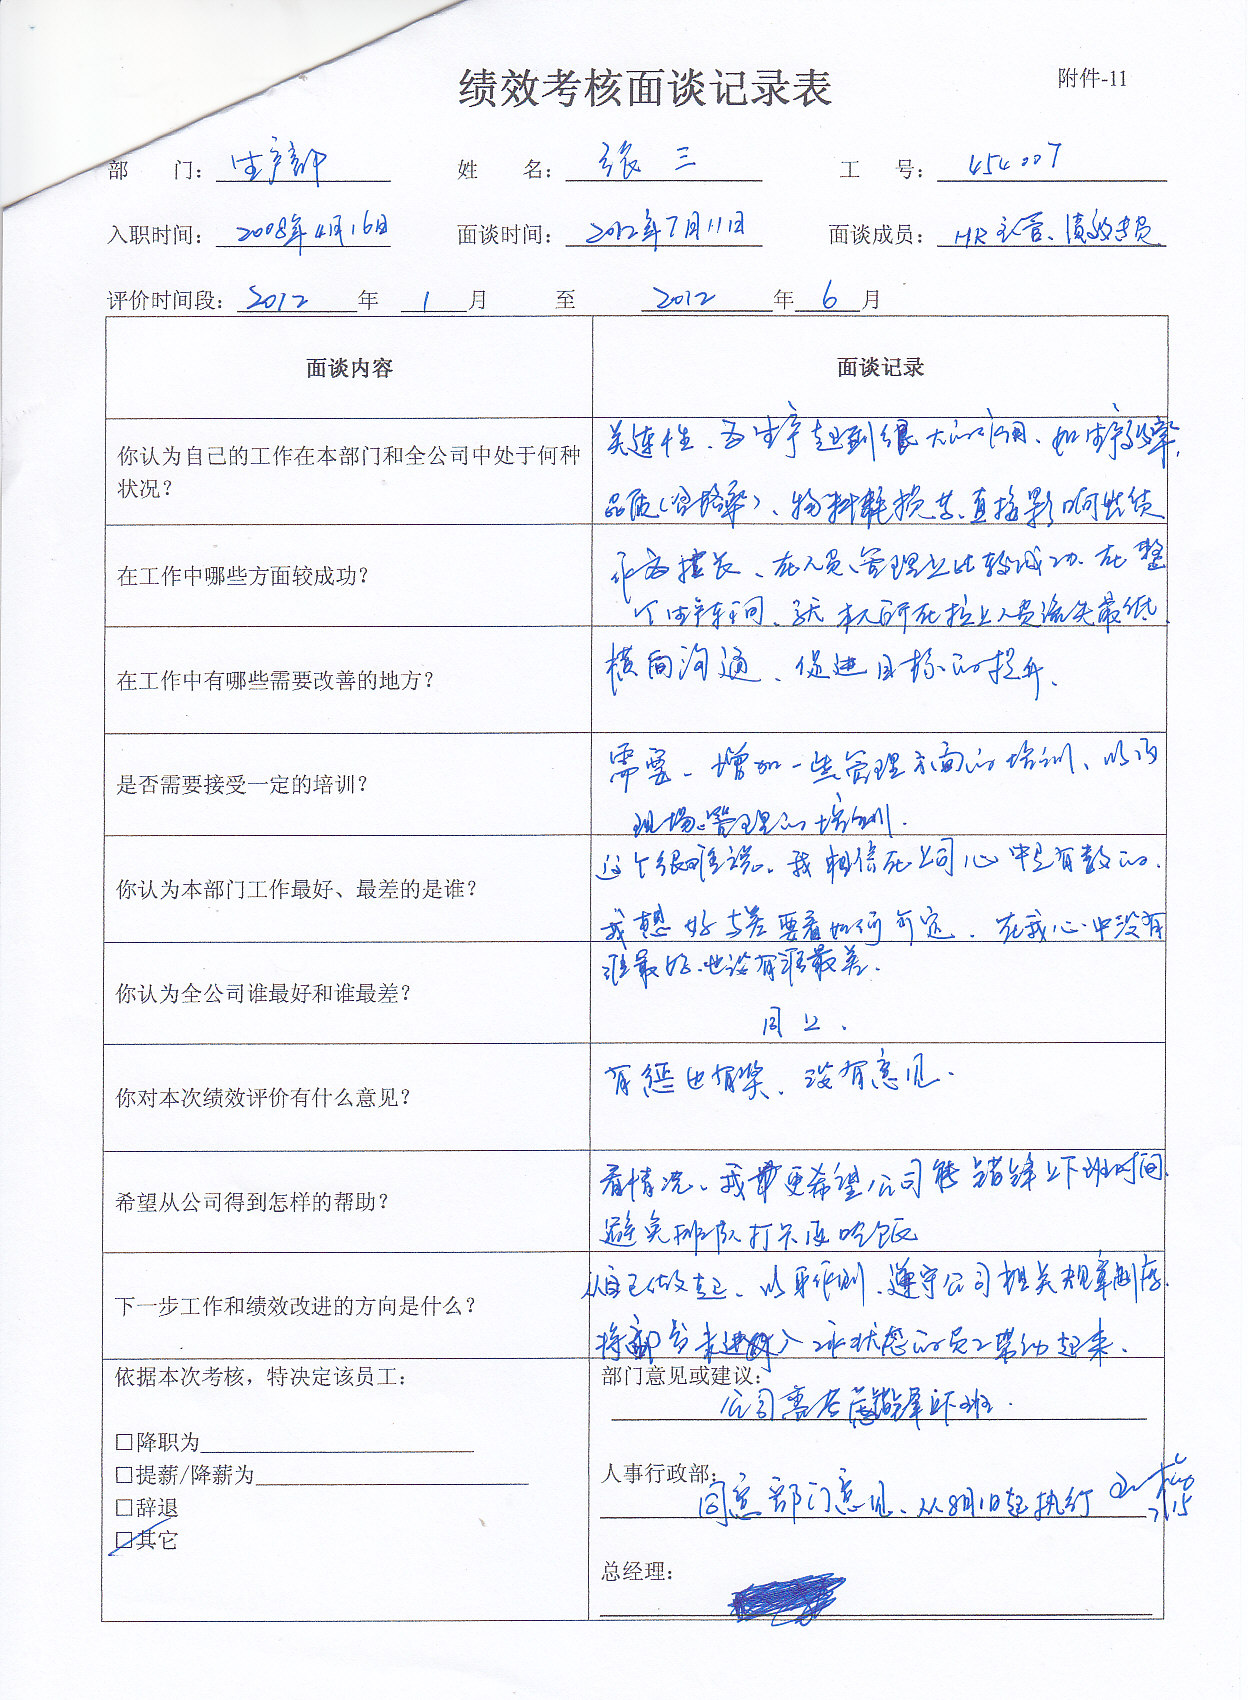 绩效考核面谈记录表
附件-11
部 门：生产部 姓 名：张三 工 号：454007
入职时间：2008年4月16日 面谈时间：2012年7月11日 面谈成员：HR主管、绩效专员
评价时间段：2012年 1月 至 2012年 6月
面谈内容 面谈记录
你认为自己的工作在本部门和全公司中处于何种
状况？
关连性、为生产起到很大的作用、如生产效率,
品质(合格率)、物料耗损等、直接影响业绩
在工作中哪些方面较成功？
作为拉长、在人员管理上比较成功.在整
个生产车间、本人所在拉上人员流失最低.
在工作中有哪些需要改善的地方？
横向沟通、促进目标的提升、
是否需要接受一定的培训？
需要、增加一些管理方面的培训、以及
现场管理的培训.
你认为本部门工作最好、最差的是谁？
这个很难说。我相信在上司心中是有数的.
我想好与差要看如何界定、在我心中没有
谁最好.也没有谁最差.
你认为全公司谁最好和谁最差？
同上.
你对本次绩效评价有什么意见？
有惩也有奖、没有意见.
希望从公司得到怎样的帮助？
看情况、我更希望公司能错锋上下班时间.
避免排队打卡及吃饭
下一步工作和绩效改进的方向是什么？
从自己做起、以身作则、遵守公司相关规章制度.
将部分未进入工作状态的员工带动起来.
依据本次考核，特决定该员工：
□降职为
□提薪/降薪为
□辞退
□其它
部门意见或建议：
公司需考虑错锋上下班.
人事行政部：
同意部门意见、从8月1日起执行
7/15
总经理：